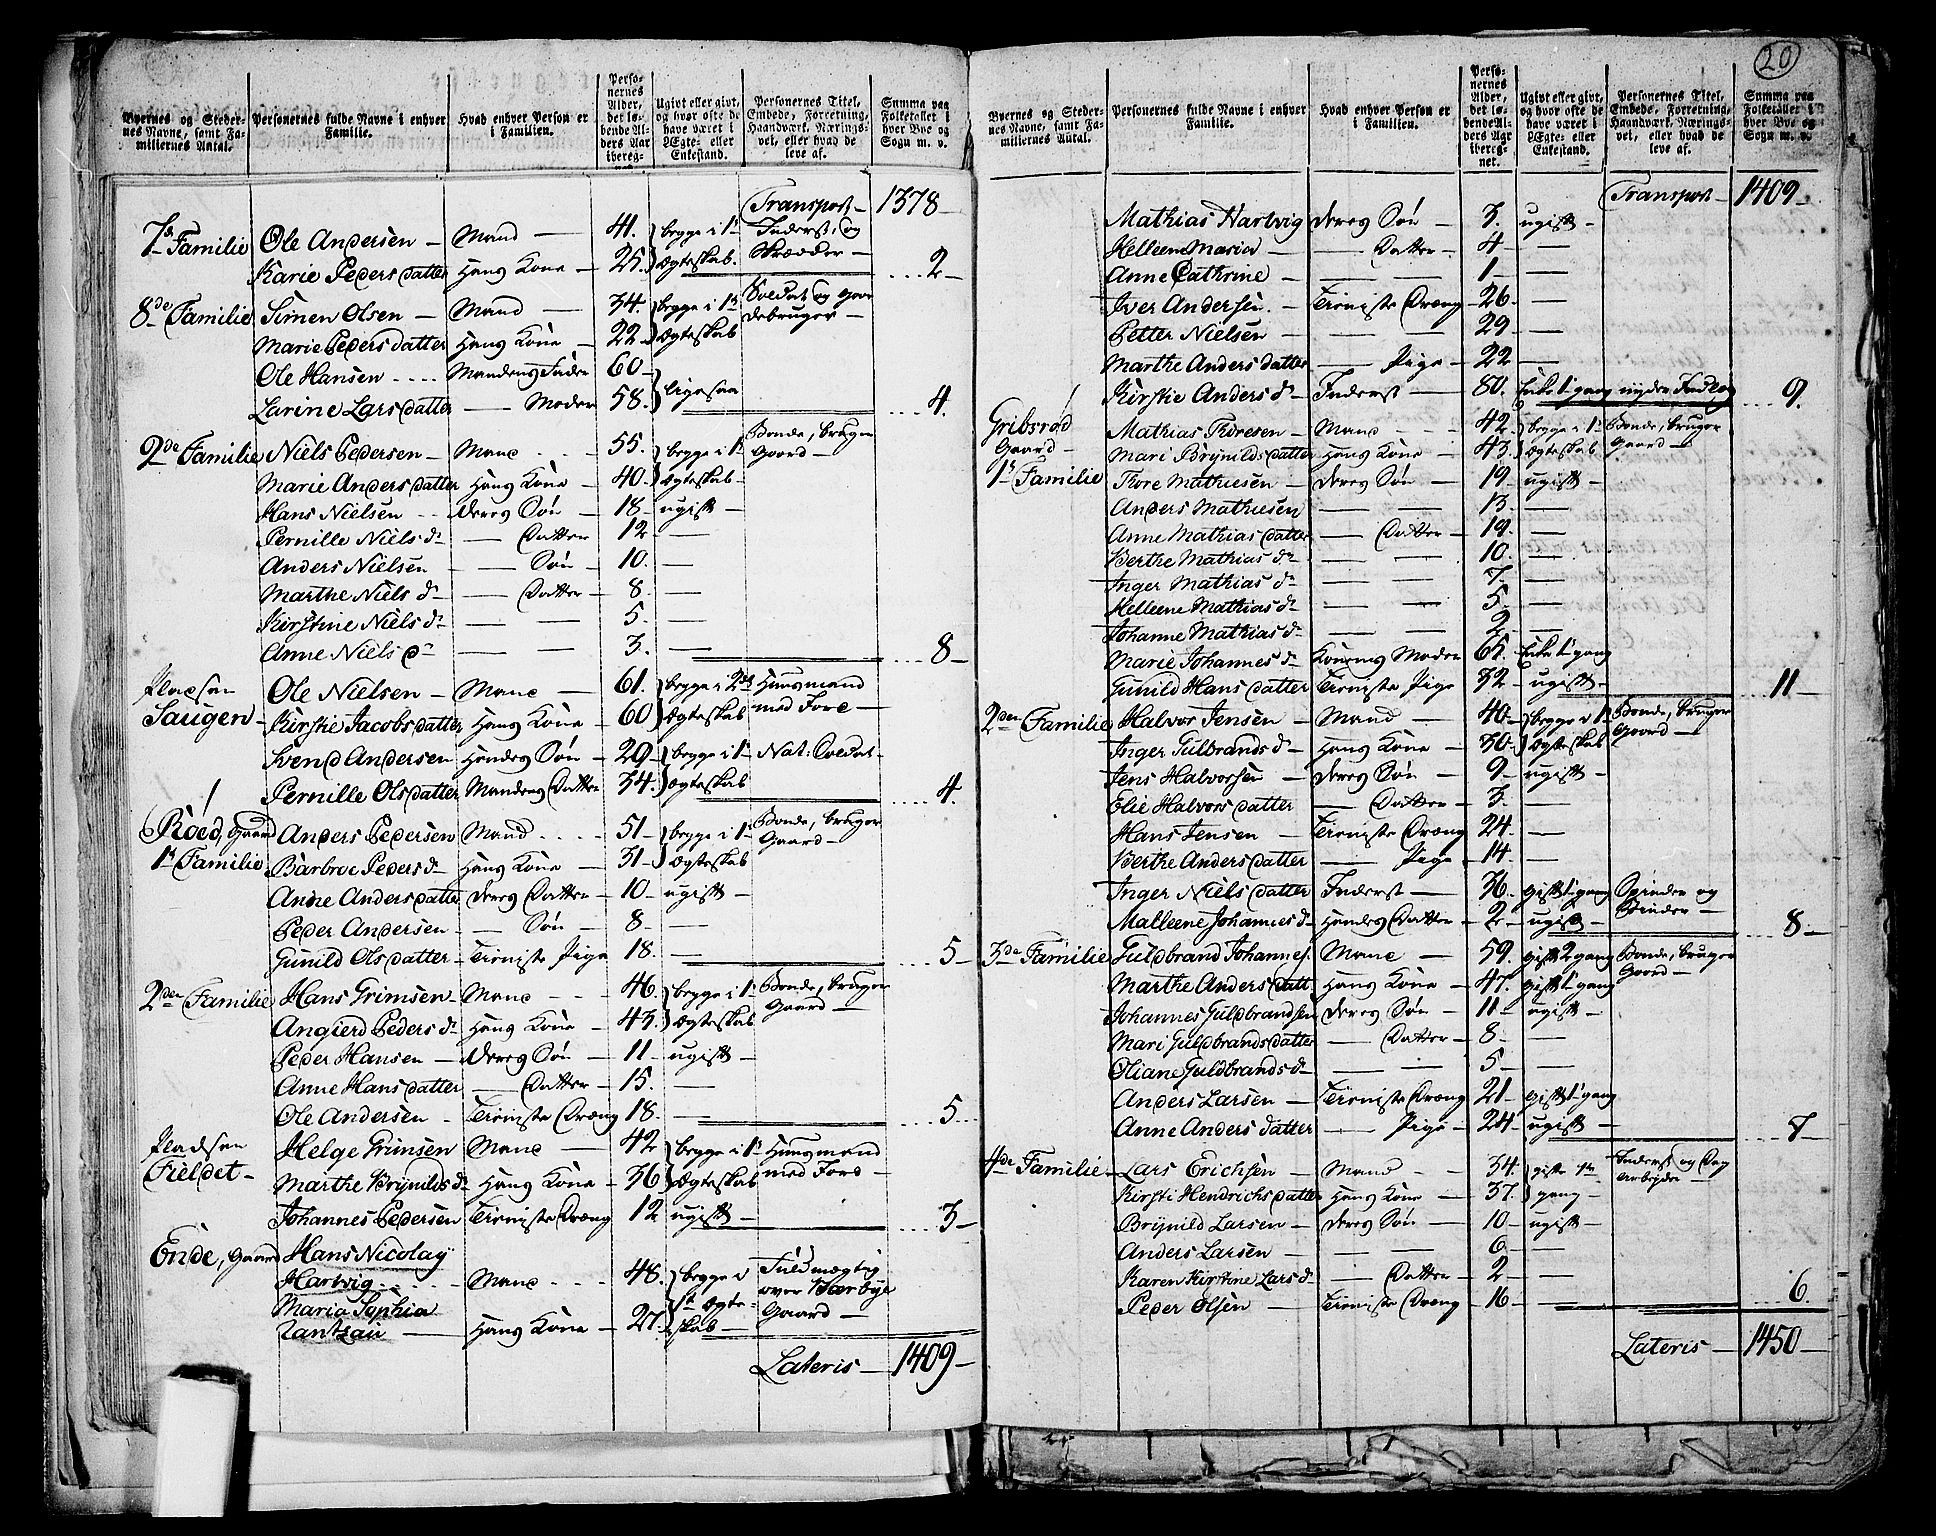 20
Byernes og Stedernes Navne, samt Familiernes Antal.
Personernes fulde Navne i enhver Familie.
Hvad enhver Person er i Familien.
Personernes Alder, det løbende Alders Aar iberegnet.
Ugivt eller givt, og hvor ofte de have været i Ægte- eller Enkestand.
Personernes Titel, Embede, Forretning, Haandværk, Næringsvei, eller hvad de leve af.
Summa paa Folketallet i hver Bye og Sogn m. v.
Transport — 1378 —
7de Familie Ole Andersen — Mand — 41. begge i 1te Inderst, og
Karie Pedersdatter Hans Kone — 25. Ægteskab. Skrædder — 2 —
8de Familie Simen Olsen — Mand — 34. begge i 1te Soldat og Gaar
Marie Pedersdatter Hans Kone — 22 — Ægteskab — debruger —
Ole Hansen .... Mandens Fader 60 —
Larine Larsdatter — Moder 58. ligesaa 4.
2de Familie Niels Pedersen — Mand 55. begge i 1te Bonde, bruger
Marie Andersdatter Hans Kone — 40 — Ægteskab — Gaard —
Hans Nielsen .. deres Søn — 18 — ugift —
Pernille Niels dr — Datter 12 —
Anders Nielsen — Søn — 10. —
Marthe Niels dr — Datter — 8 —
Kirstine Niels dr — — 5. —
Anne Niels dr — — 3. — 8 —
Pladsen Ole Nielsen — Mand — 61. begge i 2det Huusmand
Saugen — Kirstie Jacobsdatter Hans Kone — 60 Ægteskab med Jord —
Svend Andersen Hendes Søn — 29 — begge i 1te Nat: Soldat —
Pernille Olsdatter Mandens Datter 34. Ægteskab 4.
Røed, Gaard Anders Pedersen Mand .... 51 — begge i 1te Bonde, bruger
1te Familie Barbroe Peders dr Hans Kone — 31 — Ægteskab Gaard —
Anne Andersdatter deres Datter — 10 — ugift —
Peder Andersen — Søn — 8 — —
Gunild Olsdatter — Tieniste Pige 18. — 5 —
2den Familie Hans Grimsen — Mand ... 46. begge i 1te Bonde, bruger
Angierd Peders dr Hans Kone — 43. Ægteskab Gaard —
Peder Hansen — deres Søn — 11 — ugift —
Anne Hansdatter — Datter — 15. —
Ole Andersen — Tieniste Dræng 18. — 5 —
Pladsen Helge Grimsen Mand — 42 begge i 1te Huusmand
Fieldet — Marthe Brynilds dr Hans Kone — 36 Ægteskab med Jord —
Johannes Pedersen Tieniste Dræng 12 ugift — 3 —
Ende, Gaard Hans Nicolay
Hartvig .... Mand ... 48. begge i Fuldmægtig
Maria Sophia 1te Ægte- over Bærbye
Rantzau — Hans Kone — 27. skab — Gaard —
Lateris — 1409 —
Byernes og Stedernes Navne, samt Familiernes Antal.
Personernes fulde Navne i enhver Familie.
Hvad enhver Person er i Familien.
Personernes Alder, det løbende Alders Aar iberegnet.
Ugivt eller givt, og hvor ofte de have været i Ægte- eller Enkestand.
Personernes Titel, Embede, Forretning, Haandværk, Næringsvei, eller hvad de leve af.
Summa paa Folketallet i hver Bye og Sogn m. v.
Transport — 1409 —
Mathias Hartvig deres Søn — 3. ugift —
Helleen Maria — Datter — 4 — —
Anne Cathrine — — 1 — —
Iver Andersen — Tieniste Dræng 26 — —
Petter Nielsen — — 29 — —
Marthe Andersdatter — Pige — 22 —
Kirstie Anders d. Inderst — 80. Enke 1 gang nyder Føderaad 9.
Gribsrød Mathias Thoresen — Mand — 42. begge i 1te Bonde, bruger
Gaard — Mari Brynildsdatter Hans Kone — 43. Ægteskab Gaard —
1te Familie Thore Mathiesen — deres Søn — 19 ugift —
Anders Mathiesen — — 13 — —
Anne Mathiasdatter — Datter — 19. —
Berthe Mathias dr — — 10. —
Inger Mathias dr — — 7. —
Helleene Mathias dr — — 5. —
Johanne Mathias dr — — 2 — —
Marie Johannes dr Konens Moder 65. Enke 1 gang
Gunild Hansdatter Tieniste Pige 32 — ugift — 11 —
2den Familie Halvor Jensen — Mand — 40 — begge i 1te Bonde, bruger
Inger Gulbrands dr Hans Kone — 30 — Ægteskab Gaard —
Jens Halvorsen — deres Søn — 9 — ugift —
Elie Halvorsdatter — Datter — 3. —
Hans Jensen — Tieniste Dræng 24. —
Berthe Andersdatter — Pige — 14 — —
Inger Nielsdatter Inderst — 36. gift 1 gang Spinder og
Malleene Johannes d — Hendes Datter 2 — ugift — Binder — 8 —
3de Familie Guldbrand Johannes. Mand — 59. gift 2 gang Bonde, bruger
Marthe Andersdatt. Hans Kone — 47. gift 1 gang Gaard —
Johannes Guldbrandsen deres Søn — 11 — ugift —
Mari Guldbrandsdatter — Datter — 8 — —
Oliane Guldbrands dr — — 5 — —
Anders Larsen — Tieniste Dræng 21 — gift 1 gang
Anne Andersdatter — Pige — 24 — ugift — 7 —
4de Familie — Lars Erichsen — Mand — 34. gifte 1te Inderst og Dag
Kirsti Hendrichsdatter Hans Kone — 37. gang — Arbeyder —
Brynild Larsen — deres Søn — 10 — ugift —
Anders Larsen — — 6 — —
Karen Kirstine Lars dr — Datter — 2 — —
Peder Olsen — Tieniste Dræng 16 — — 6.
Lateris — 1450 —